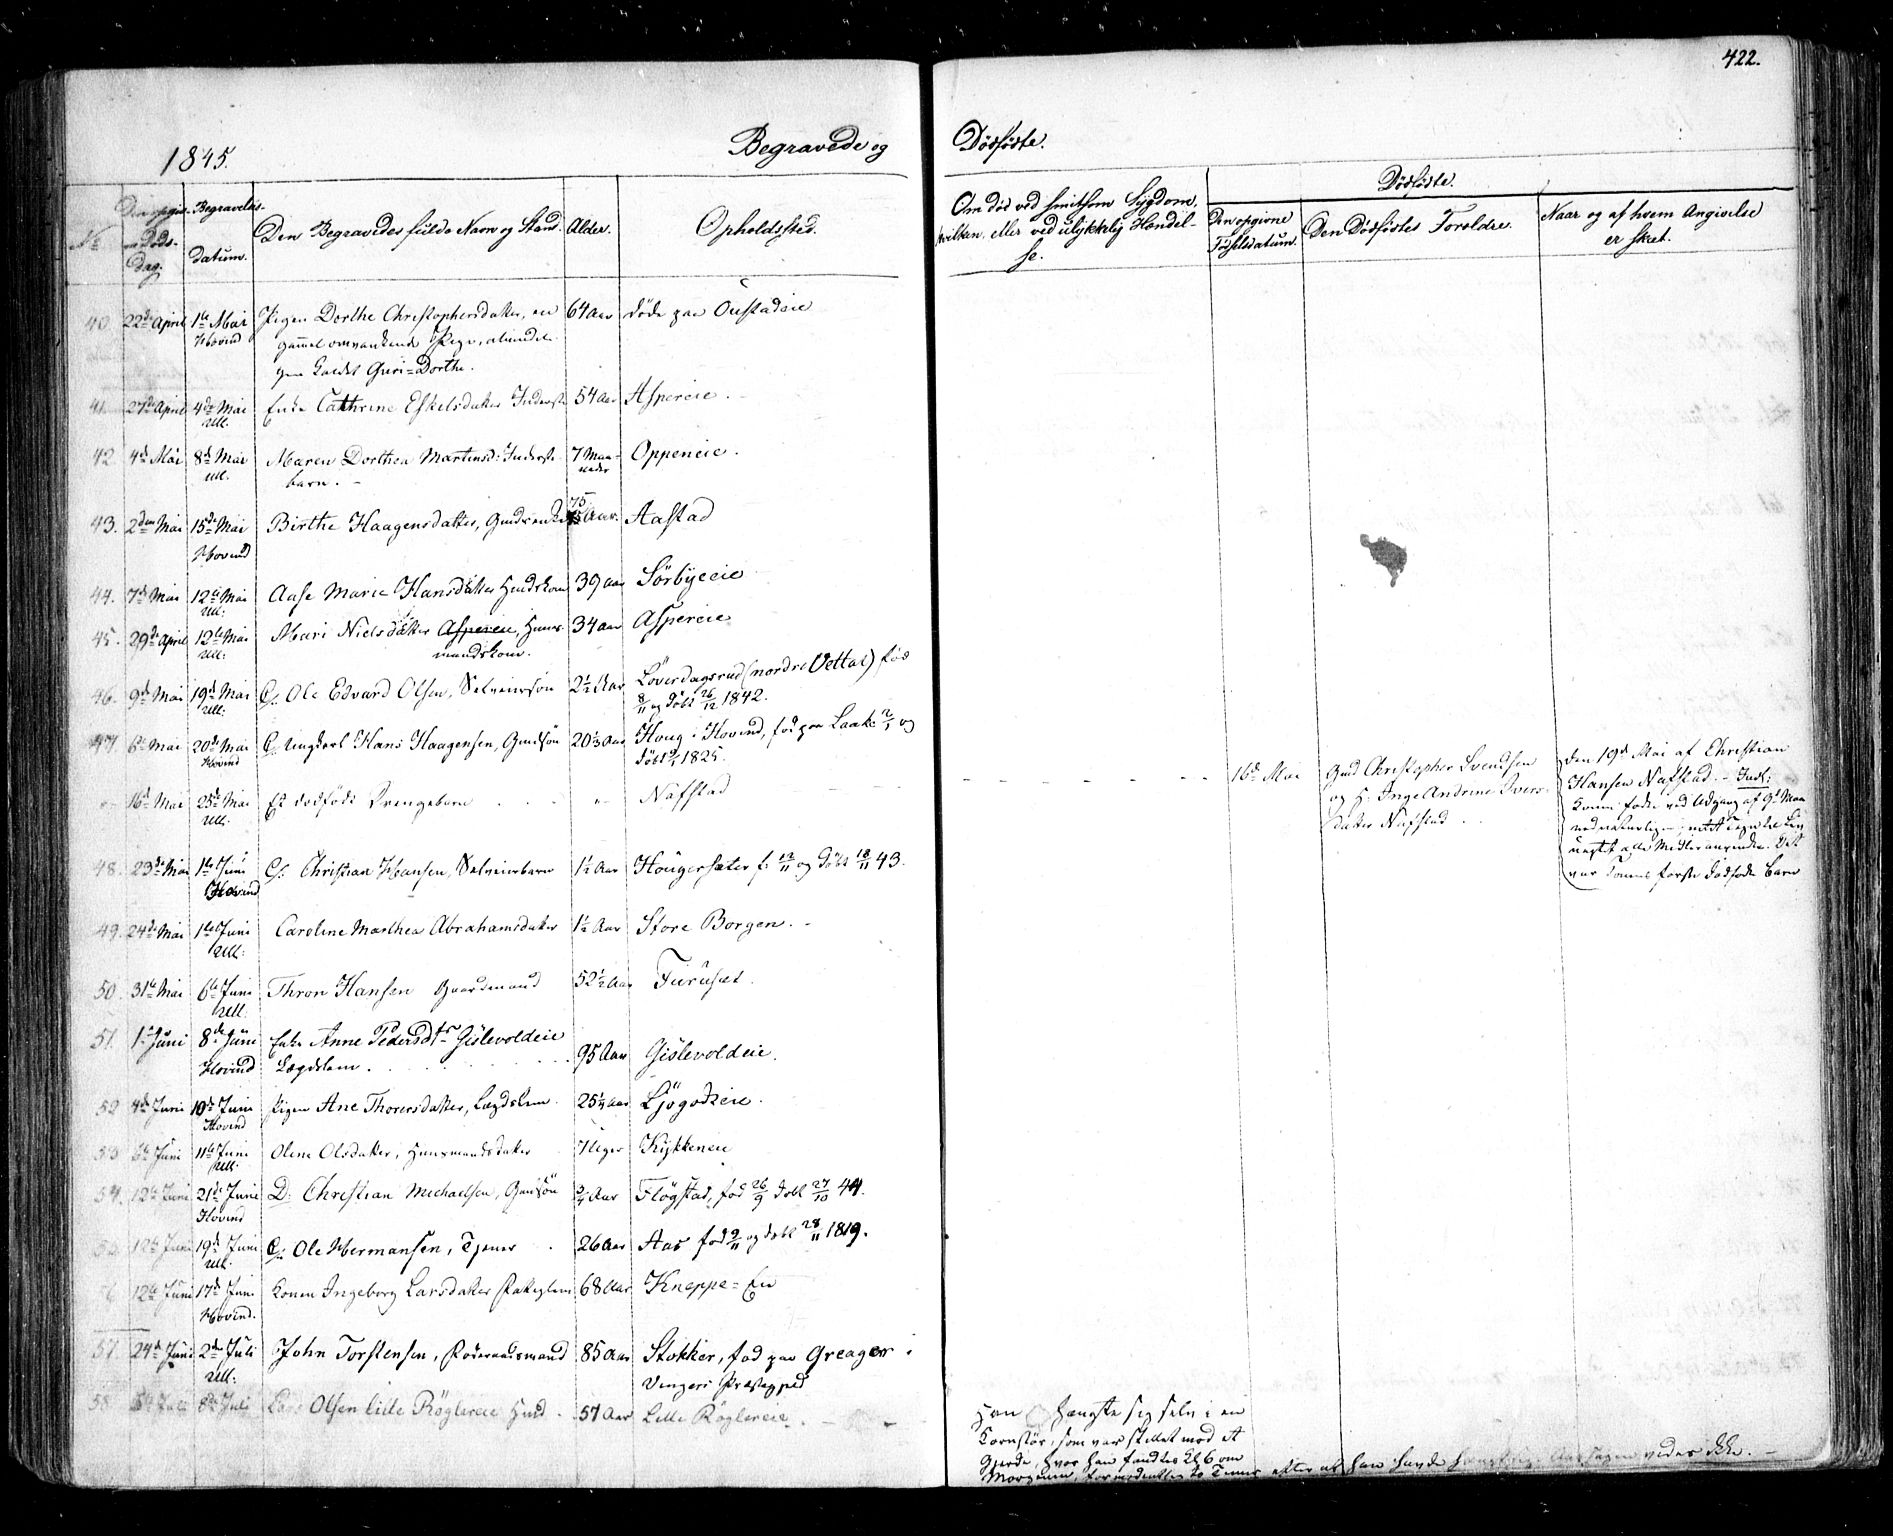 422.
1845.
Begravede og
Dödfödte.
No
Den opgivne Döds-Dag.
Begravelses-datum.
Den Begravedes fulde Navn og Stand.
Alder.
Opholdssted.
Om död ved smitsom Sygdom, hvilken, eller ved ulykkelig Hændelse.
Dödfödte.
Den opgivne Födselsdatum.
Den Dödfödtes Forældre.
Naar og af hvem Angivelse er skeet.
40. 22de April 1te Mai Pigen Dorthe Christophersdatter, en 64 Aar döde paa Oustadeie
Hovind gammel omvankende Pige, almindeli-
gen kaldet Guri=Dorthe.
41. 27de April 4de Mai Enke Cathrine Eskelsdatter Inderste 54 Aar Aspereie.
Ull.
42. 4de Mai 8de Mai Maren Dorthea Martinsd: Inderste- 7 Maa- Oppeneie.
Ull. barn. neder
43. 2den Mai 15de Mai Birthe Haagensdatter, Gmdsenke 75 Aar. Aastad
Hovind
44. 7de Mai 12te Mai Aase Marie Hansdatter Hmdskone 39 Aar Sörbyeeie
Ull:
45. 29de April 12te Mai Mari Nielsdatter Aspereie, Huus- 34 Aar Aspereie
Ull: mandskone.
46. 9de Mai 19de Mai C/. Ole Edvard Olsen, Selveiersön 2½ Aar Löverdagsrud (nordre Vettal) föd
Ull: 8/11 og döbt 26/12 1842.
47. 6te Mai 20de Mai C/. Ungkarl Hans Haagensen, Gmdsön 20⅓ Aar Houg i Hovind, föd paa Laake 2/1 og
Hovind döbt 9/1 1825.
16de Mai 25de Mai Et dödfödt Drengebarn " Nafstad
Ull.
16de Mai
Gmd Christopher Svendsen
og H. Inge Andrine Ivers-
datter Nafstad
Den 19de Mai af Christian
Hansen Nafstad. - Indl:
Konen födte ved Udgang af 9de Maa
ned naturlig -, intet Tegn til Liv
uagtet alle Midler anvendte. Det
var Konens förste dödfödte Barn
48. 23de Mai 1te Juni C/. Christian Hansen, Selveierbarn 1½ Aar Hougersæter f: 12/11 og döbt 18/11 43.
Hovind
49. 24de Mai 1te Juni Caroline Marthea Abrahamsdatter 1½ Aar Store Borgen.
Ull:
50. 31te Mai 6te Juni Thron Hansen Gaardmand 52½ Aar Furuset.
Ull.
51. 1te Juni 8de Juni Enke Anne Pedersdtr Gislevoldeie
Hovind Lægdslem. 95 Aar Gislevoldeie.
52 4de Juni 10de Juni Pigen Ane Thorersdatter, Lægdslem. 25¼ Aar Ljögodteie.
Hovind
53 6te Juni 11te Juni Oline Olsdatter, Huusmandsdatter 7 Uger Kykkeneie
Ull.
54. 12te Juni 21de Juni D: Christian Michaelsen, Gmdsön ¾ Aar Flögstad, föd 26/9 döbt 27/10 44.
Hovind
55 12te Juni 19de Juni C/. Ole Hermansen, Tjener 26 Aar Aas föd 9/11 og döbt 28/11 1819.
Ull.
12te Juni 17de Juni Konen Ingeborg Larsdatter 68 Aar Kneppe=Eie
Hovind.
57. 24de Juni 2den Juli John Torstensen, Föderaadsmand 85 Aar Stokker, föd paa Greager i
Ull: Vingers Præstegjeld
58. 5te Juli 8de Juli Lars Olsen Lille Röglereie Hmd 57 Aar Lille Röglereie.
Han hængte sig selv i en
Kornstör, som var stillet mod et
Gjerde, hvor han fandtes Kl 6 om
Morgenen, formodentlig to Timer efter at han havde hængt sig. Aarsagen vides ikke.